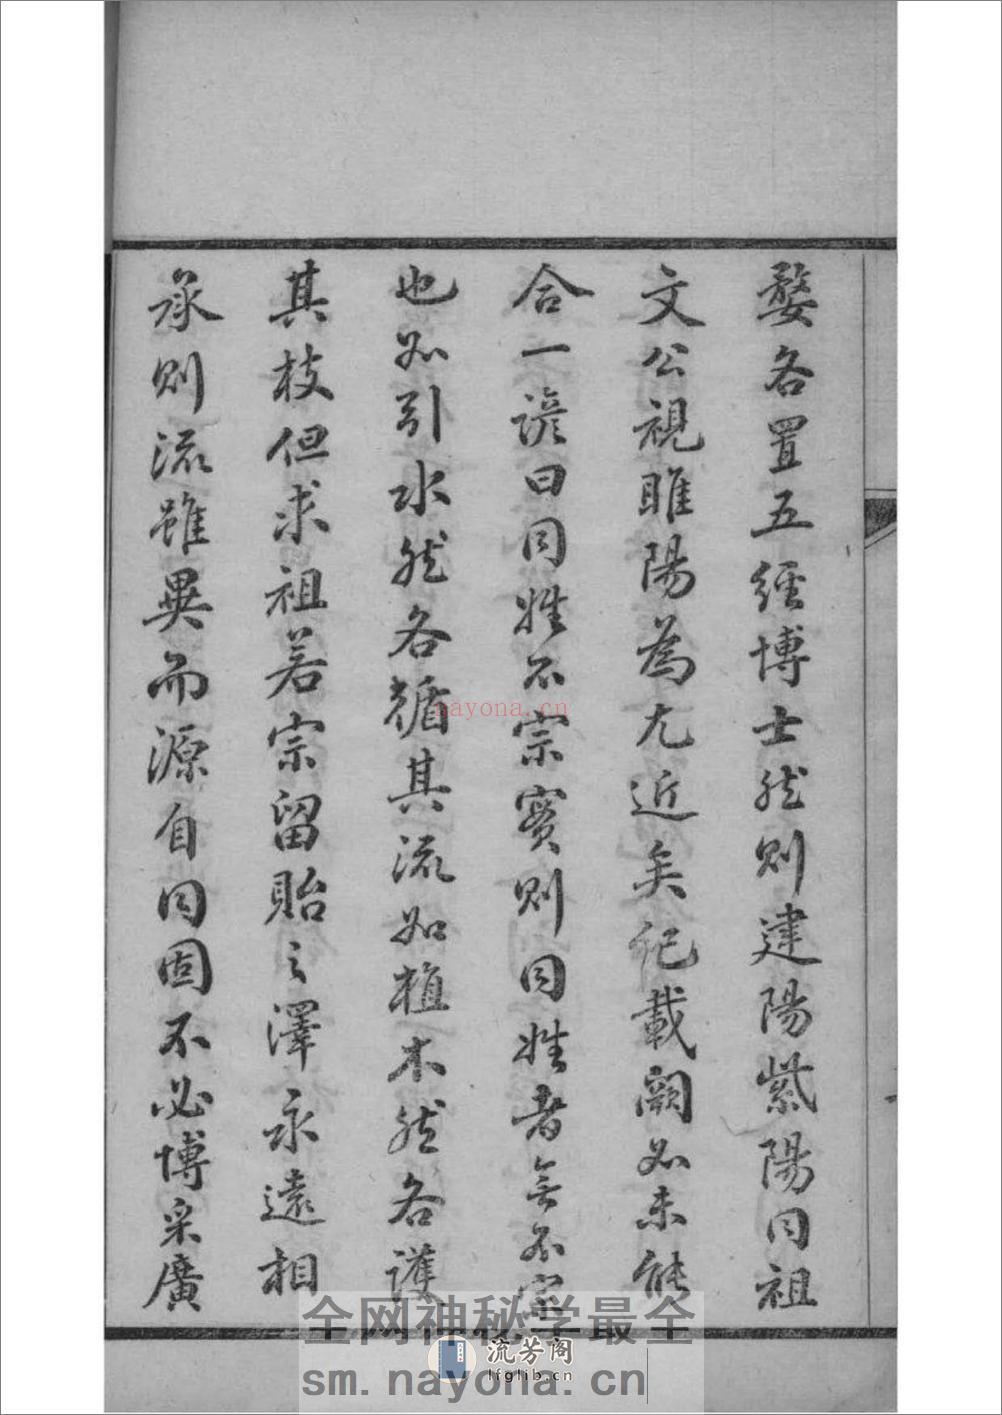 婺各置五經博士然則建陽紫陽同祖
文公視睢陽為尤近矣紀載闕如未能
合一諺曰同姓不宗實則同姓者無不宗
也如引水然各循其流如植木然各護
其枝但求祖若宗留貽之澤永遠相
承則流雖異而源自同固不必博采廣
nayona.cn
全网神秘学最全
流芳阁
lfglib.cn
sm.nayona.cn